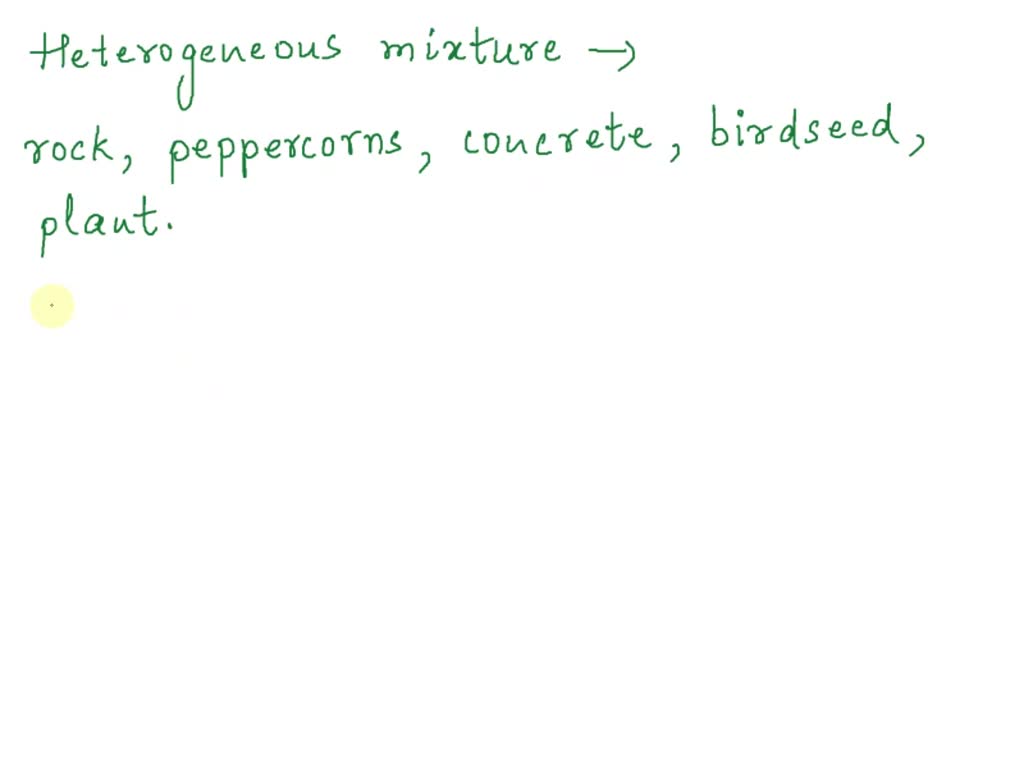 Heterogeneous mixture →
rock, peppercorns, concrete, birdseed,
plant.